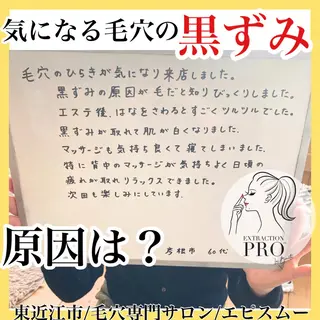 気になる毛穴の黒ずみ
毛穴のひらきが気になり来店しました。
黒ずみの原因が毛だと知りびっくりしました。
エステ後、はなをさわるとすごくツルツルでした。
黒ずみが取れて肌が白くなりました。
マッサージも気持ち良くて寝てしまいました。
特に背中のマッサージが気持ちよく日頃の
疲れが取れリラックスできました。
次回も楽しみにしています。
彦根市 60代
EXTRACTION
PRO
原因は？
東近江市/毛穴専門サロン/エピスムー